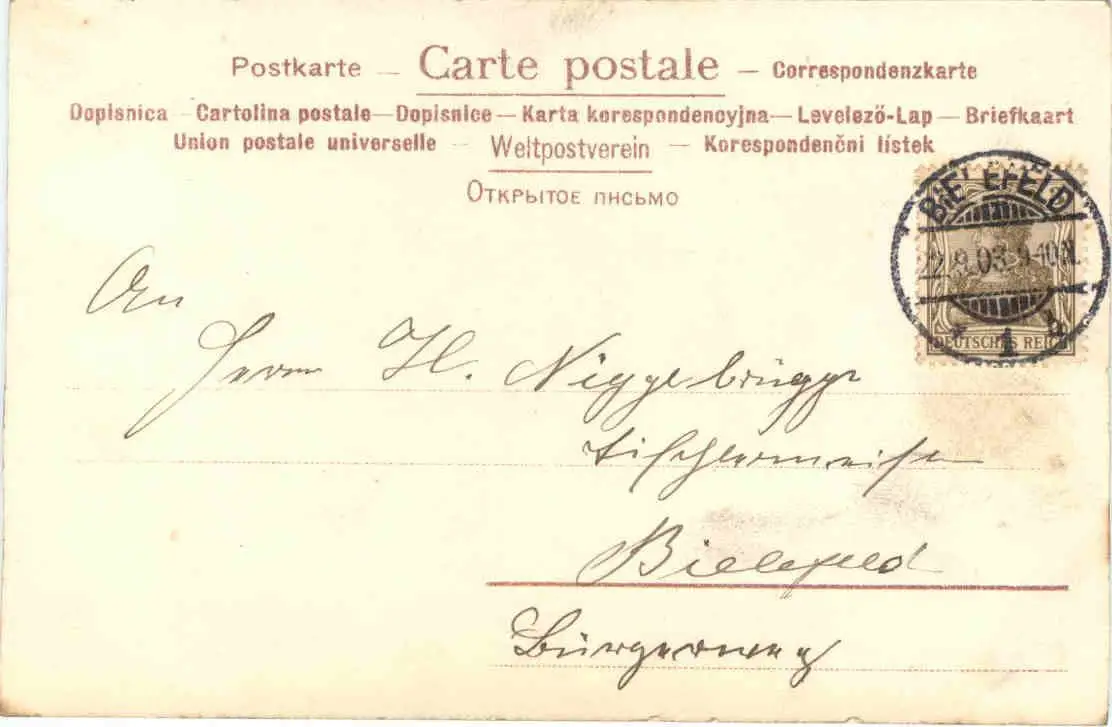 Postkarte — Carte postale — Correspondenzkarte
Dopisnica — Cartolina postale — Dopisnice — Karta korespondencyjna — Levelező-Lap — Briefkaart
Union postale universelle — Weltpostverein — Korespondenčni lístek
Открытое письмо
BIELEFELD
2.9.03. 9-10 N.
* 1 b
DEUTSCHES REICH
An
Herrn H. Niggebrügge
Tischlermeister
Bielefeld
Bürgerweg